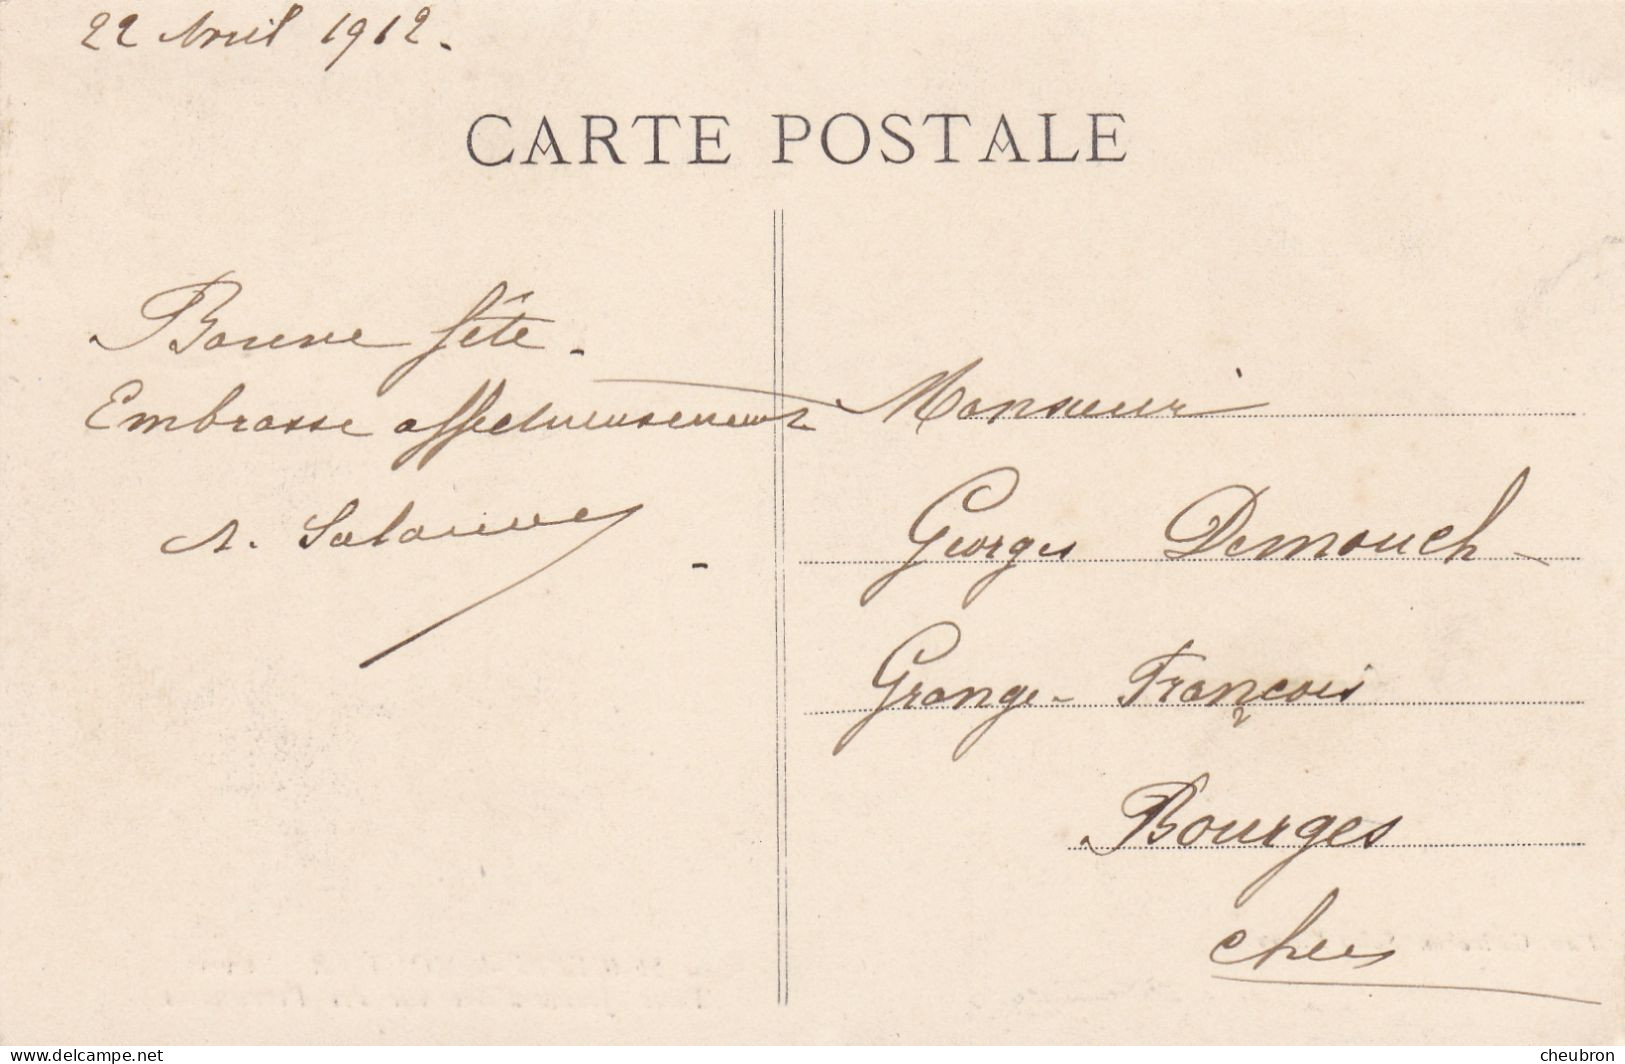 22 Avril 1912.
CARTE POSTALE
Bonne fête.
Embrasse affectueusement
A.
Monsieur
Georges Demouch
Grange-François
Bourges
Cher
delcampe.net
cheubron